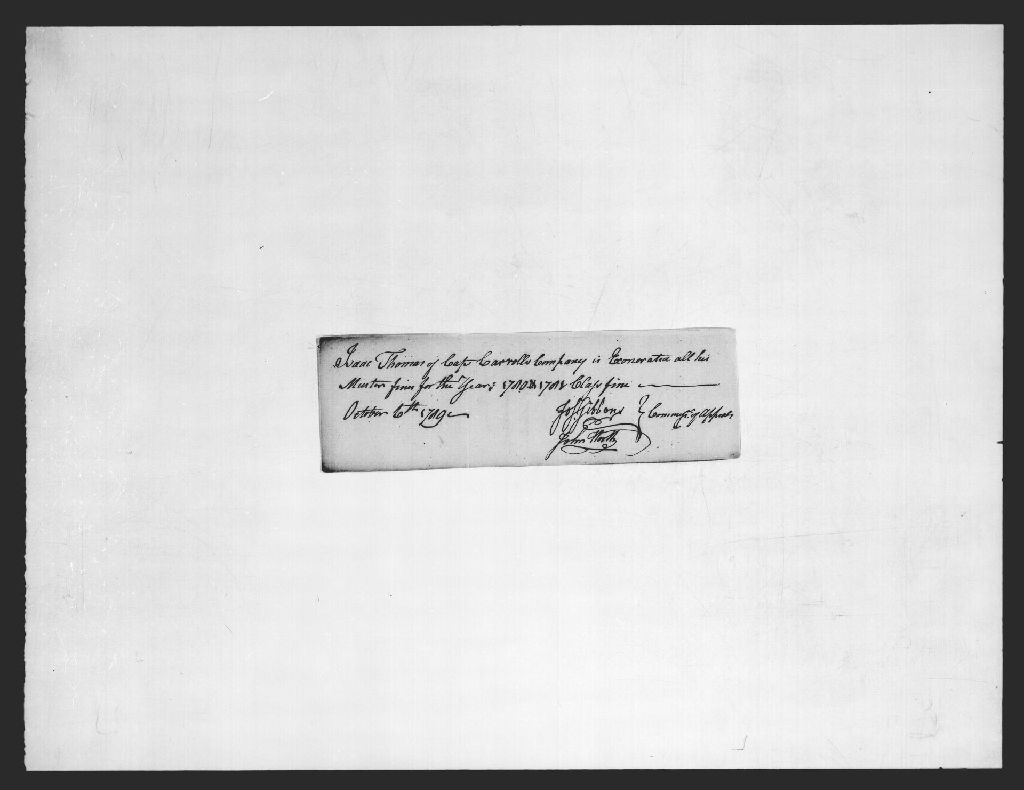 Isaac Thomas of Capt Carrolls Company is Exonerated all his
Muster fines for the Years 1780 & 1781 Class fine
October 6th 1789
Jos Gibbons
John Worth
Commrs. of Appeals